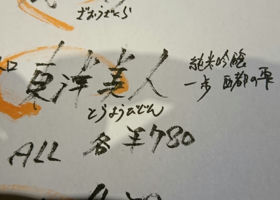 東洋美人
とうようびじん
純米吟醸
一歩 西都の雫
ALL 各 ¥780